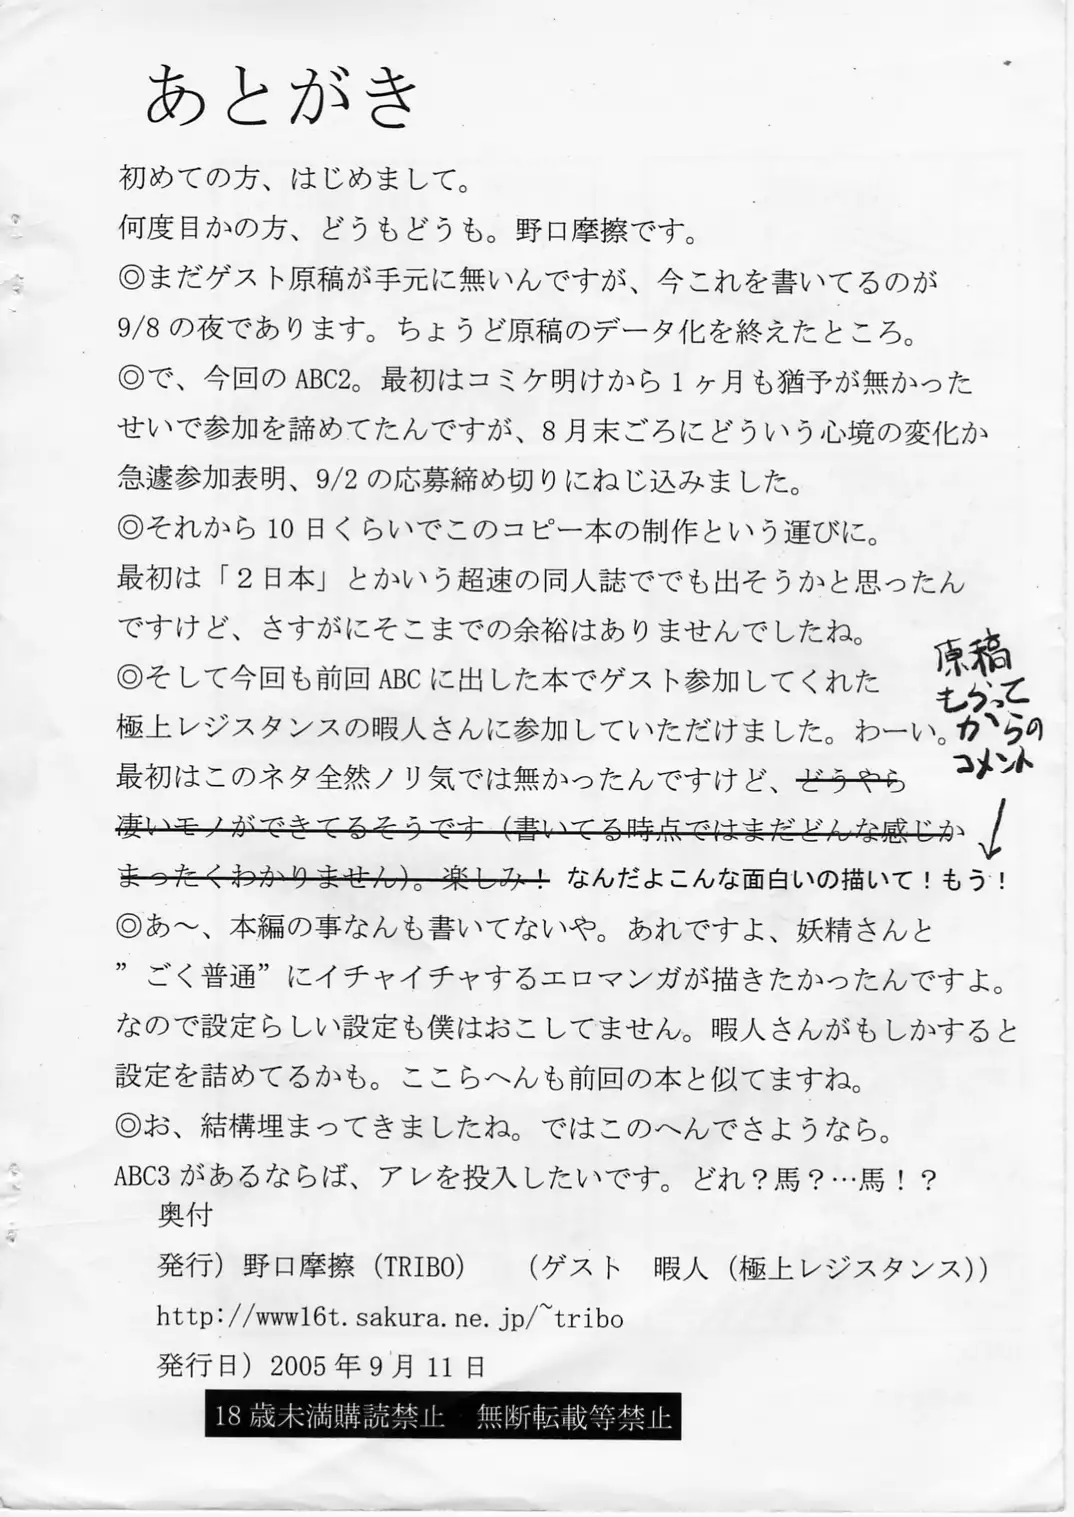 あとがき
初めての方、はじめまして。
何度目かの方、どうもどうも。野口摩擦です。
◎まだゲスト原稿が手元に無いんですが、今これを書いてるのが
9/8の夜であります。ちょうど原稿のデータ化を終えたところ。
◎で、今回のABC2。最初はコミケ明けから1ヶ月も猶予が無かった
せいで参加を諦めてたんですが、8月末ごろにどういう心境の変化か
急遽参加表明、9/2の応募締め切りにねじ込みました。
◎それから10日くらいでこのコピー本の制作という運びに。
最初は「２日本」とかいう超速の同人誌ででも出そうかと思ったん
ですけど、さすがにそこまでの余裕はありませんでしたね。
◎そして今回も前回ABCに出した本でゲスト参加してくれた
極上レジスタンスの暇人さんに参加していただけました。わーい。
最初はこのネタ全然ノリ気では無かったんですけど、どうやら
凄いモノができてるそうです（書いてる時点ではまだどんな感じか
まったくわかりません）。楽しみ！ なんだよこんな面白いの描いて！もう！
原稿
もらって
からの
コメント
◎あ～、本編の事なんも書いてないや。あれですよ、妖精さんと
”ごく普通”にイチャイチャするエロマンガが描きたかったんですよ。
なので設定らしい設定も僕はおこしてません。暇人さんがもしかすると
設定を詰めてるかも。ここらへんも前回の本と似てますね。
◎お、結構埋まってきましたね。ではこのへんでさようなら。
ABC3があるならば、アレを投入したいです。どれ？馬？…馬！？
奥付
発行）野口摩擦（TRIBO）　（ゲスト　暇人（極上レジスタンス））
http://www16t.sakura.ne.jp/~tribo
発行日）2005年9月11日
18歳未満購読禁止　無断転載等禁止